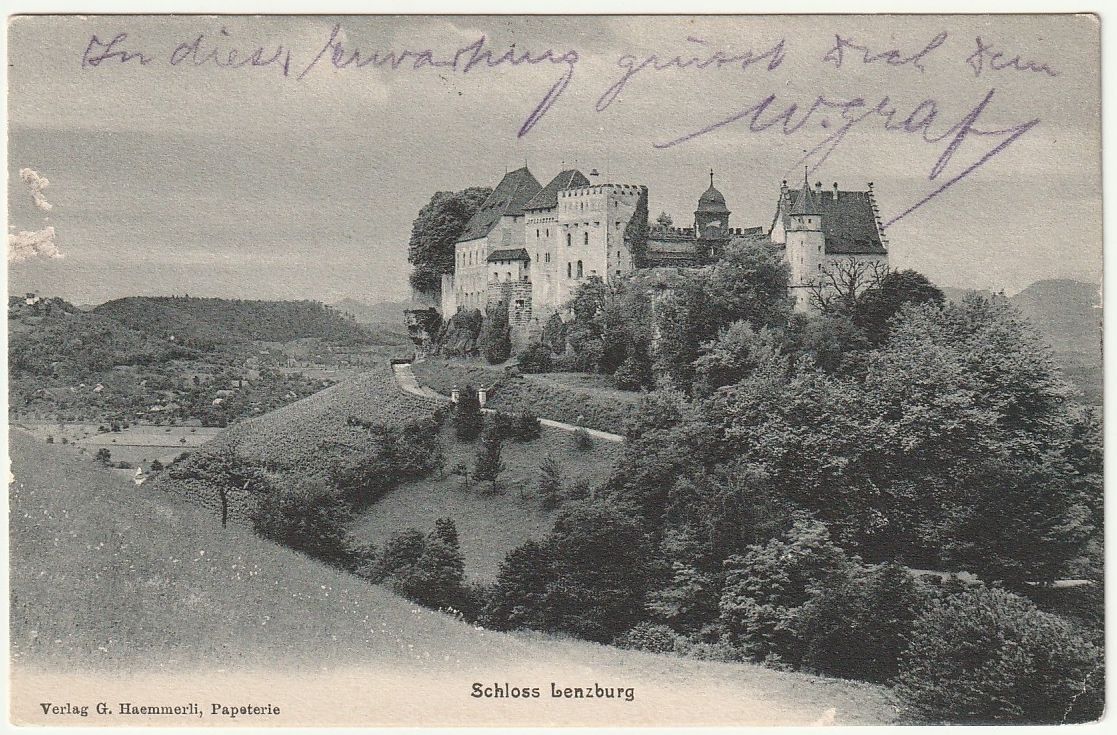 In dieser Erwartung grüsst Dich Dein
W. Graf
Schloss Lenzburg
Verlag G. Haemmerli, Papeterie